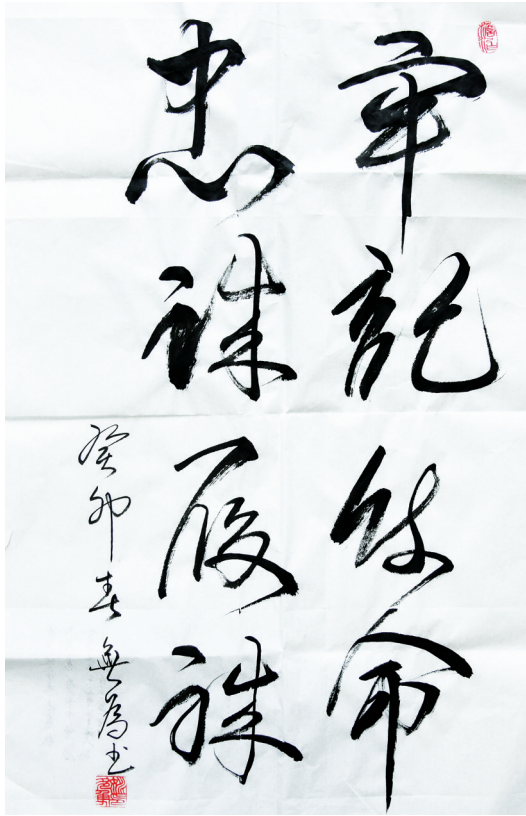 牢記使命
忠誠履職
癸卯春無為书